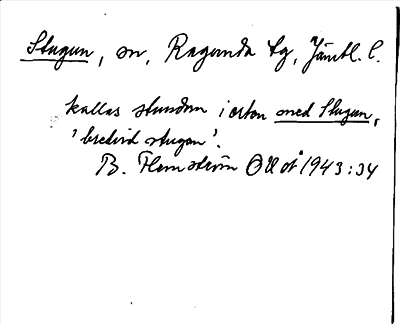 Stugun, sn, Ragunda tg, Jämtl. l.
kallas stundom i orten med Stugun,
'bredvid stugan'.
B. Flemström OUoÅ 1943:34